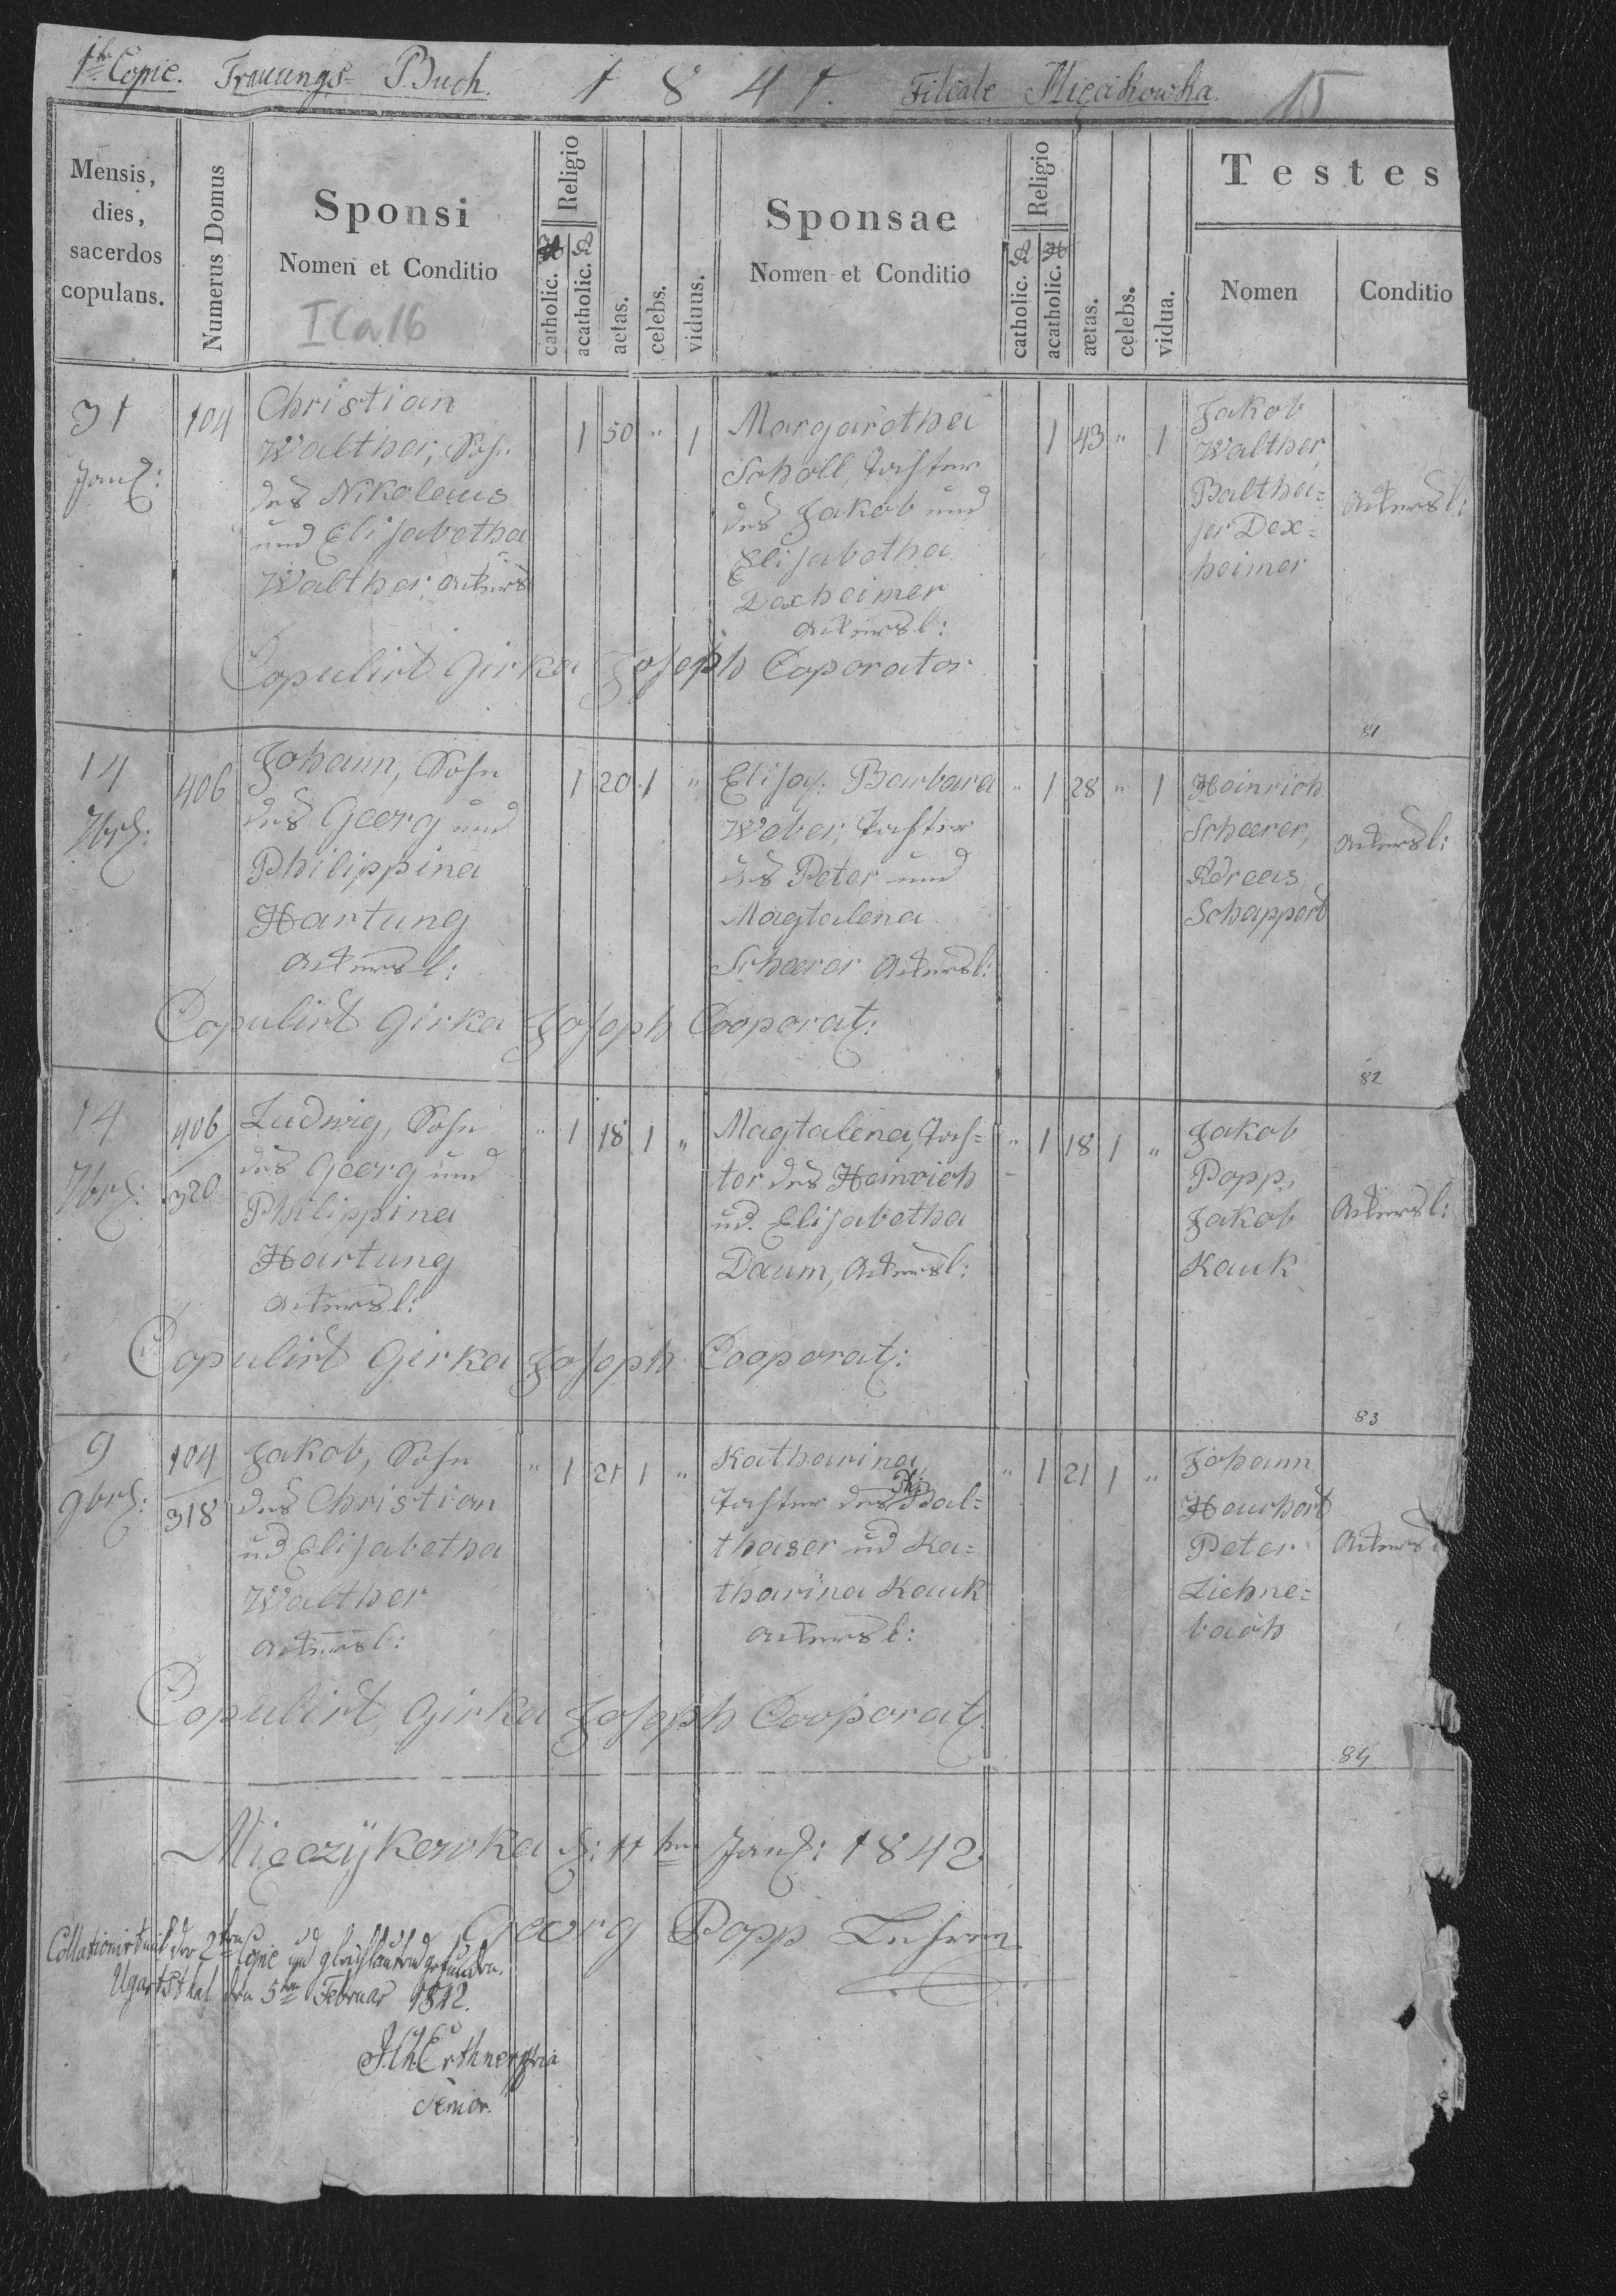 1te Copie. Trauungs- Buch. 1 8 4 1. Filiale Mięcikowka. 15
Mensis, dies, sacerdos copulans.
Numerus Domus
Sponsi
Nomen et Conditio
ICa16
Religio
catholic.
acatholic.
aetas.
celebs.
viduus.
Sponsae
Nomen et Conditio
Religio
catholic.
acatholic.
aetas.
celebs.
vidua.
Testes
Nomen
Conditio
31
Janr:
104
Christian
Walther, Sohn
des Nikolaus
und Elisabetha
Walther, Ackers
1 50 " 1
Margaretha
Scholl, Tochter
des Jakob und
Elisabetha
Dexheimer
Ackersl:
1 43 " 1
Jakob
Walther
Baltha=
ser Dex=
heimer
Ackersl:
Copulirt Girka Joseph Coporator
81
14
7br:
406
Johann, Sohn
des Georg und
Philippina
Hartung
Ackersl:
1 20 1 "
Elisa. Barbara
Weber, Tochter
des Peter und
Magtalena
Scherer Ackersl:
" 1 28 " 1
Heinrich
Scheerer,
Adreas
Schappert
Ackersl:
Copulirt Girka Joseph Cooporat:
82
14
7br:
406
320
Ludwig, Sohn
des Georg und
Philippina
Hartung
Ackersl:
" 1 18 1 "
Magtalena, Toch=
ter des Heinrich
ud. Elisabetha
Daum, Ackersl:
" 1 18 1 "
Jakob
Popp,
Jakob
Kauk
Ackersl:
Copulirt Girka Joseph Cooporat:
83
9
9br:
104
318
Jakob, Sohn
des Christian
ud Elisabetha
Walther
Ackersl:
" 1 21 1 "
Katharina,
Tochter des Bal=
thaser ud Ka=
tharina Kauk
Ackersl:
" 1 21 1 "
Johann
Hauchert
Peter
Ziehne=
bach
Ackersl
Copulirt Girka Joseph Cooporat.
84
Mięczÿkowka d: 11ten Janr: 1842
Georg Popp Lehrer
Collationirt mit der 2ten Copie und gleichlautend gefunden.
Ugartsthal den 5ten Februar 1842.
Senior.